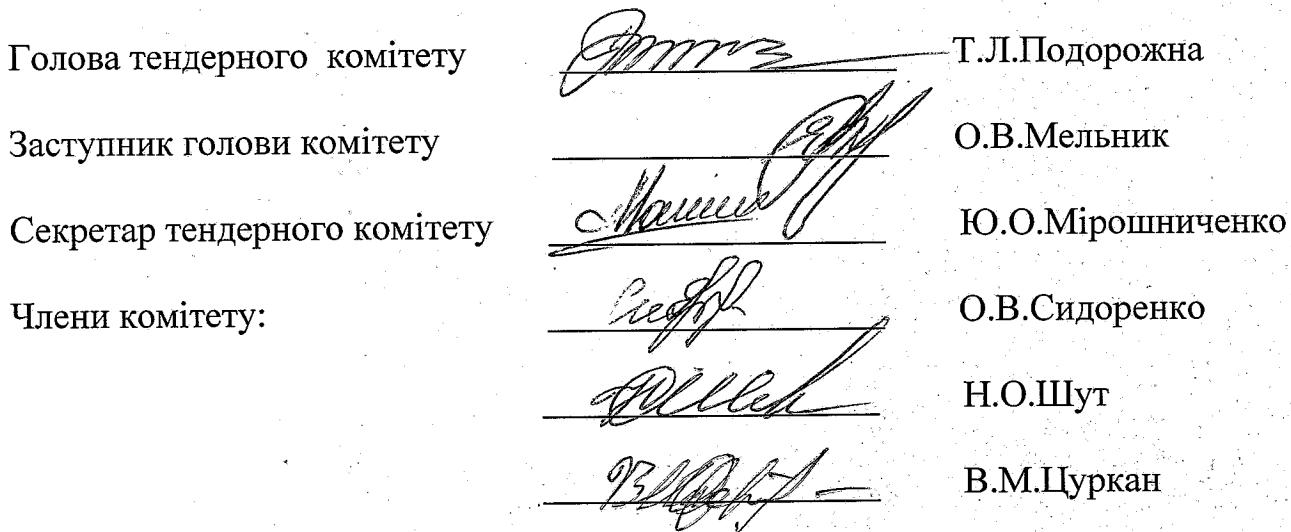 Голова тендерного комітету Т.Л.Подорожна
Заступник голови комітету О.В.Мельник
Секретар тендерного комітету Ю.О.Мірошниченко
Члени комітету: О.В.Сидоренко
Н.О.Шут
В.М.Цуркан